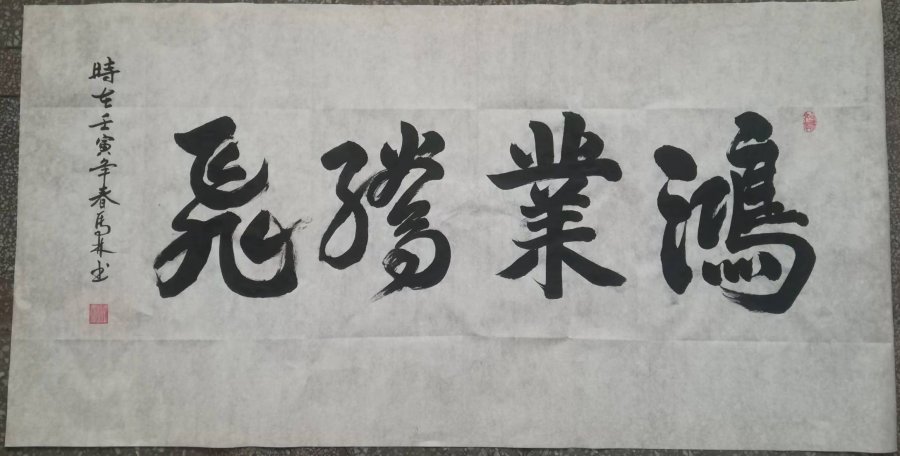 鴻業騰飛
時在壬寅年春馬林書